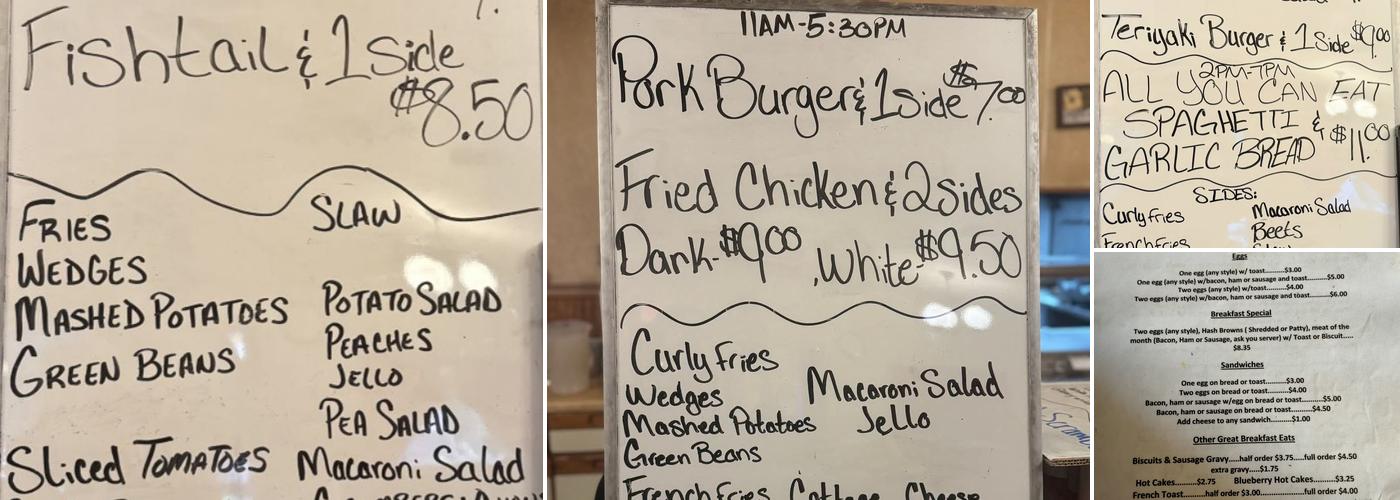 Fishtail & 1 Side
$8.50
FRIES
SLAW
WEDGES
MASHED POTATOES
POTATO SALAD
GREEN BEANS
PEACHES
JELLO
PEA SALAD
Sliced TOMATOES
Macaroni Salad
11AM-5:30PM
Pork Burger & 1 Side $7.00
Fried Chicken & 2 Sides
Dark-$9.00, White-$9.50
Curly Fries
Wedges
Macaroni Salad
Mashed Potatoes
Jello
Green Beans
French Fries Cottage Cheese
Teriyaki Burger & 1 Side $9.00
2PM-7PM
ALL YOU CAN EAT
SPAGHETTI &
GARLIC BREAD $11.00
SIDES:
Curly fries
Macaroni Salad
Beets
French fries
Eggs
One egg (any style) w/ toast..........$3.00
One egg (any style) w/bacon, ham or sausage and toast..........$5.00
Two eggs (any style) w/toast..........$4.00
Two eggs (any style) w/bacon, ham or sausage and toast..........$6.00
Breakfast Special
Two eggs (any style), Hash Browns ( Shredded or Patty), meat of the
month (Bacon, Ham or Sausage, ask you server) w/ Toast or Biscuit.....
$8.35
Sandwiches
One egg on bread or toast..........$3.00
Two eggs on bread or toast..........$4.00
Bacon, ham or sausage w/egg on bread or toast..........$5.00
Bacon, ham or sausage on bread or toast..........$4.50
Add cheese to any sandwich..........$1.00
Other Great Breakfast Eats
Biscuits & Sausage Gravy.....half order $3.75.....full order $4.50
extra gravy.....$1.75
Hot Cakes..........$2.75 Blueberry Hot Cakes..........$3.25
French Toast..........half order $3.00....................full order $4.00